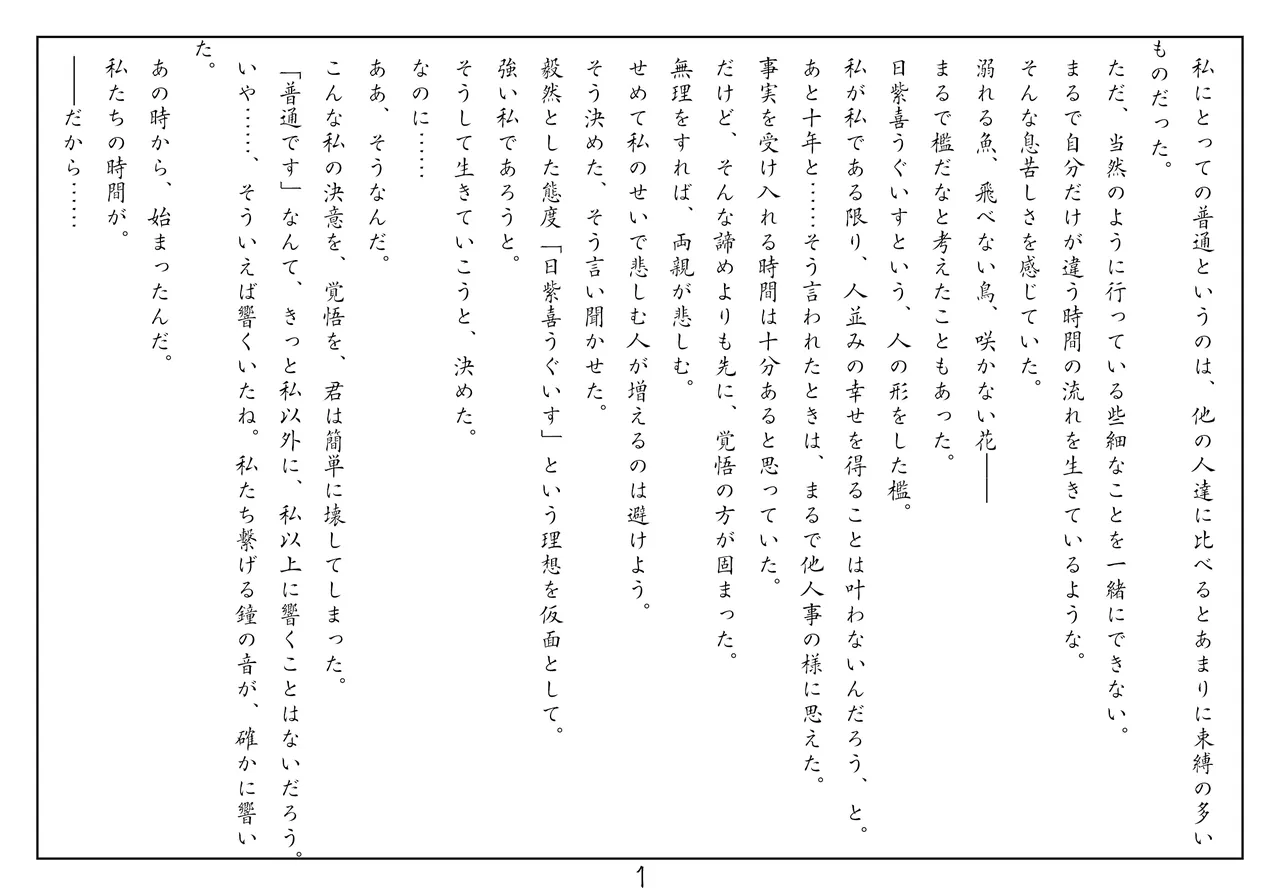 私にとっての普通というのは、他の人達に比べるとあまりに束縛の多い
ものだった。
ただ、当然のように行っている些細なことを一緒にできない。
まるで自分だけが違う時間の流れを生きているような。
そんな息苦しさを感じていた。
溺れる魚、飛べない鳥、咲かない花――
まるで檻だなと考えたこともあった。
日紫喜うぐいすという、人の形をした檻。
私が私である限り、人並みの幸せを得ることは叶わないんだろう、と。
あと十年と……そう言われたときは、まるで他人事の様に思えた。
事実を受け入れる時間は十分あると思っていた。
だけど、そんな諦めよりも先に、覚悟の方が固まった。
無理をすれば、両親が悲しむ。
せめて私のせいで悲しむ人が増えるのは避けよう。
そう決めた、そう言い聞かせた。
毅然とした態度「日紫喜うぐいす」という理想を仮面として。
強い私であろうと。
そうして生きていこうと、決めた。
なのに……
ああ、そうなんだ。
こんな私の決意を、覚悟を、君は簡単に壊してしまった。
「普通です」なんて、きっと私以外に、私以上に響くことはないだろう。
いや……、そういえば響くいたね。私たち繋げる鐘の音が、確かに響い
た。
あの時から、始まったんだ。
私たちの時間が。
――だから……
1